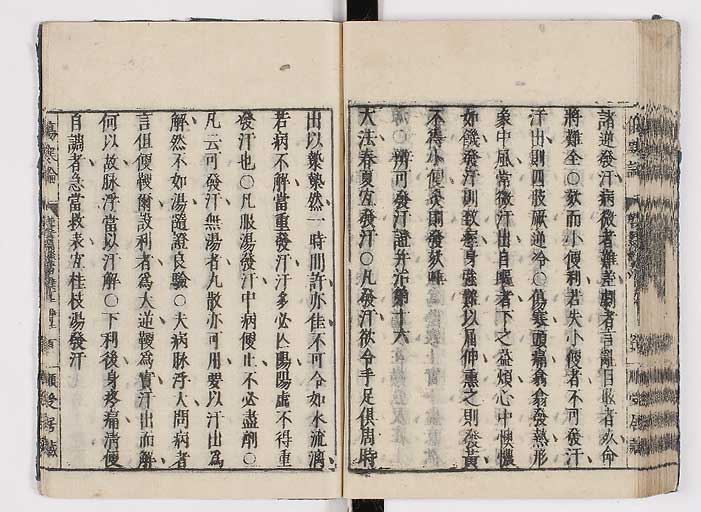 諸逆發汗病微者難差劇者言亂目眩者死命
將難全○欬而小便利若失小便者不可發汗
汗出則四肢厥逆冷○傷寒頭痛翕翕發熱形
象中風常微汗出自嘔者下之益煩心中懊憹
如飢發汗則致痙身強難以屈伸熏之則發黃
不得小便灸則發欬唾
辨可發汗證并治第十六
大法春夏宜發汗○凡發汗欲令手足俱周時
出以漐漐然一時間許亦佳不可令如水流漓
若病不解當重發汗汗多必亡陽陽虛不得重
發汗也○凡服湯發汗中病便止不必盡劑○
凡云可發汗無湯者丸散亦可用要以汗出爲
解然不如湯隨證良驗○夫病脉浮大問病者
言但便鞕爾設利者爲大逆鞕爲實汗出而解
何以故脉浮當以汗解○下利後身疼痛清便
自調者急當救表宜桂枝湯發汗
傷寒論